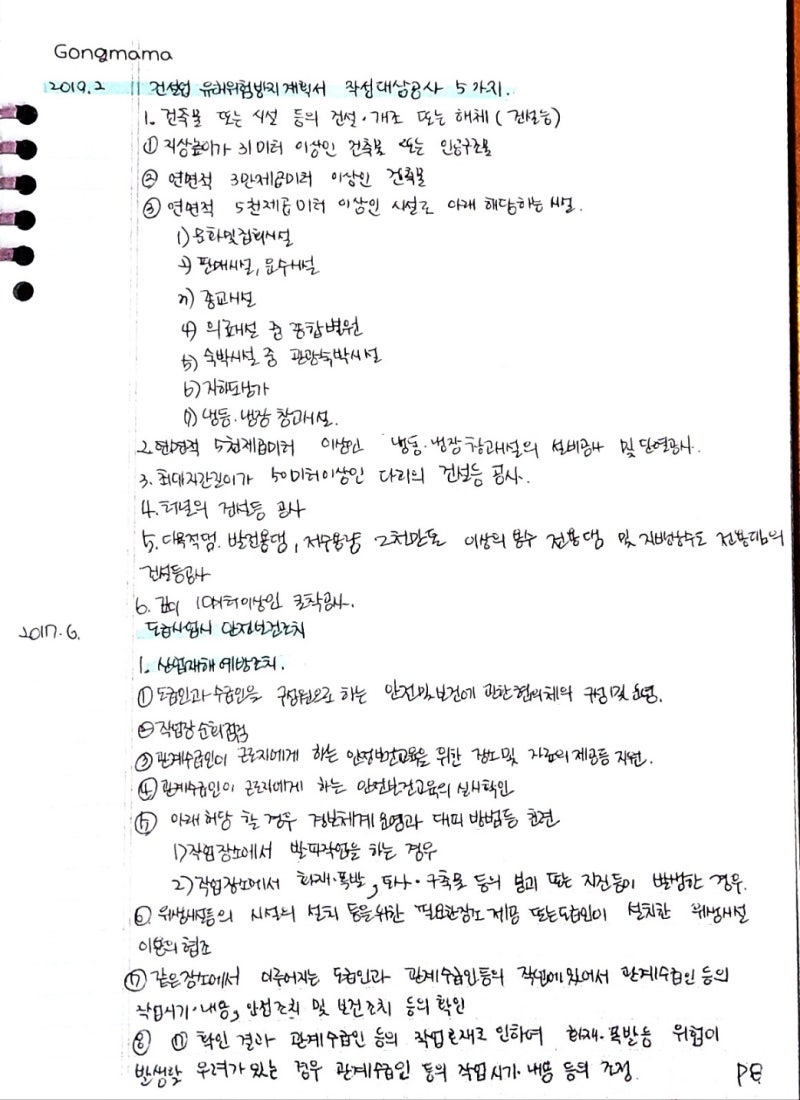 Gongmama
2019.2 건설업 유해위험방지계획서 작성대상공사 5가지.
1. 건축물 또는 시설 등의 건설·개조 또는 해체(건설등)
① 지상높이가 31미터 이상인 건축물 또는 인공구조물
② 연면적 3만제곱미터 이상인 건축물
③ 연면적 5천제곱미터 이상인 시설로 아래 해당하는 시설.
1) 문화및집회시설
2) 판매시설, 운수시설
3) 종교시설
4) 의료시설 중 종합병원
5) 숙박시설 중 관광숙박시설
6) 지하도상가
7) 냉동·냉장 창고시설.
2. 연면적 5천제곱미터 이상인 냉동·냉장창고시설의 설비공사 및 단열공사.
3. 최대지간길이가 50미터이상인 다리의 건설등 공사.
4. 터널의 건설등 공사
5. 다목적댐. 발전용댐, 저수용량 2천만톤 이상의 용수 전용댐 및 지방상수도 전용댐의
건설등공사
6. 깊이 10미터이상인 굴착공사.
2017.6. 도급사업시 안전보건조치
1. 산업재해 예방조치.
① 도급인과 수급인을 구성원으로 하는 안전및보건에 관한협의체의 구성및 운영.
② 작업장 순회점검
③ 관계수급인이 근로자에게 하는 안전보건교육을 위한 장소및 자료의 제공등 지원.
④ 관계수급인이 근로자에게 하는 안전보건교육의 실시확인
⑤ 아래 해당 할 경우 경보체계 운영과 대피 방법등 훈련
1) 작업장소에서 발파작업을 하는 경우
2) 작업장소에서 화재·폭발, 토사·구축물 등의 붕괴 또는 지진등이 발생한 경우.
⑥ 위생시설등의 시설의 설치 등을위한 필요한장소 제공 또는도급인이 설치한 위생시설
이용의 협조
⑦ 같은장소에서 이루어지는 도급인과 관계수급인등의 작업에있어서 관계수급인 등의
작업시기·내용, 안전조치 및 보건조치 등의 확인
⑧ ⑦ 확인 결과 관계수급인 등의 작업 로 인하여 화재·폭발등 위험이
발생할 우려가 있는 경우 관계수급인 등의 작업시기·내용 등의 조정.
PE